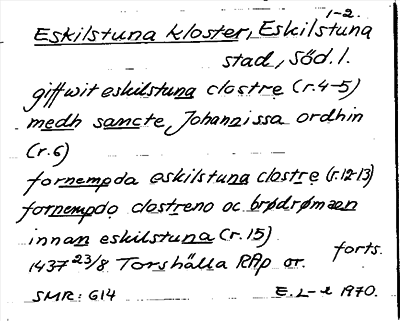 1-2.
Eskilstuna kloster, Eskilstuna
stad, Söd. l.
giffwit eskilstuna clostre (r. 4-5)
medh sancte Johannissa ordhin
(r. 6)
fornempda eskilstuna clostre (r. 12-13)
fornempdo clostreno oc brødrømæn
innan eskilstuna (r. 15)
forts.
1437 23/8 Torshälla RAp or.
SMR: 614 E. L-e 1970.